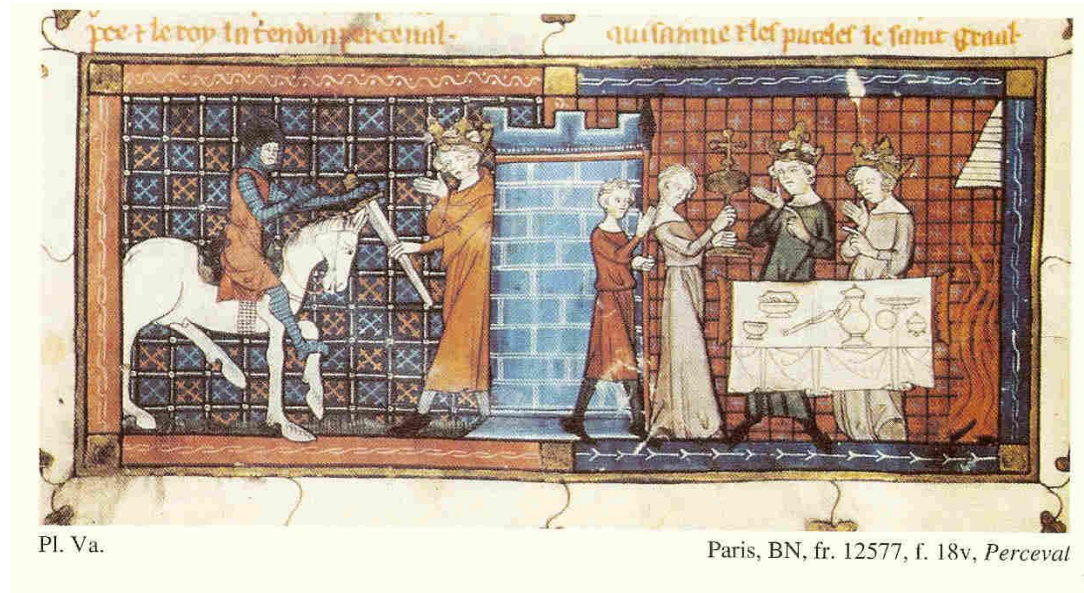 pee & le roy la tendi a perceval.
qui saine & les puceles le saint graal.
Pl. Va.
Paris, BN, fr. 12577, f. 18v, Perceval